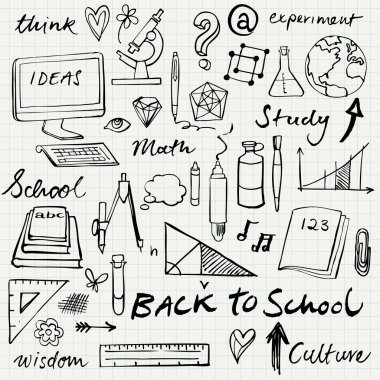 think
@
experiment
?
IDEAS
Study
Math
School
abc
123
n
BACK TO SCHOOL
wisdom
Culture